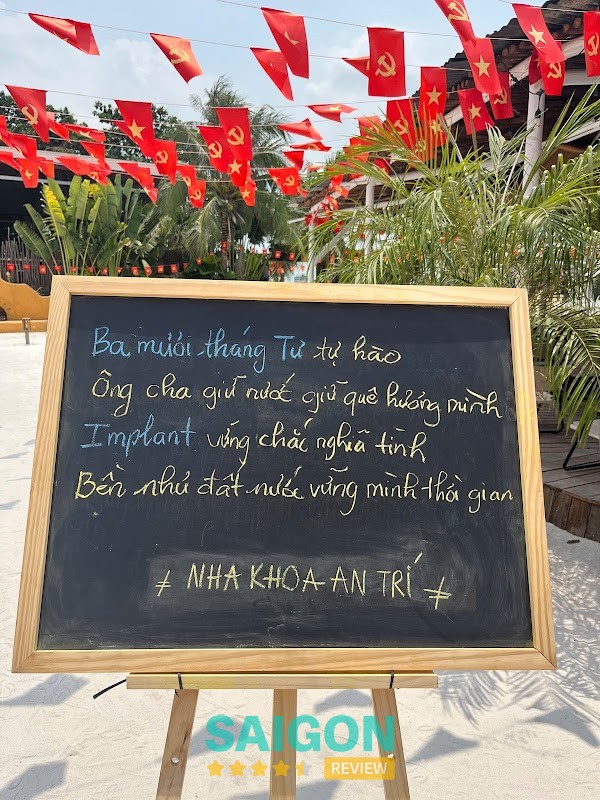 Ba mươi tháng Tư tự hào
Ông cha giữ nước giữ quê hương mình
Implant vững chắc nghĩa tình
Bền như đất nước vững mình thời gian
≠ NHA KHOA AN TRÍ ≠
SAIGON
REVIEW